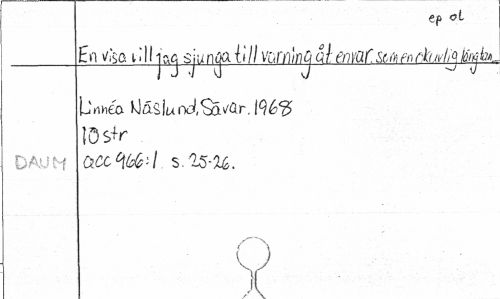 ep ot
En visa vill jag sjunga till varning åt envar, som en okuvlig längtan
Linnéa Näslund, Sävar. 1968
10 str
DAUM acc 966:1 s. 25-26.